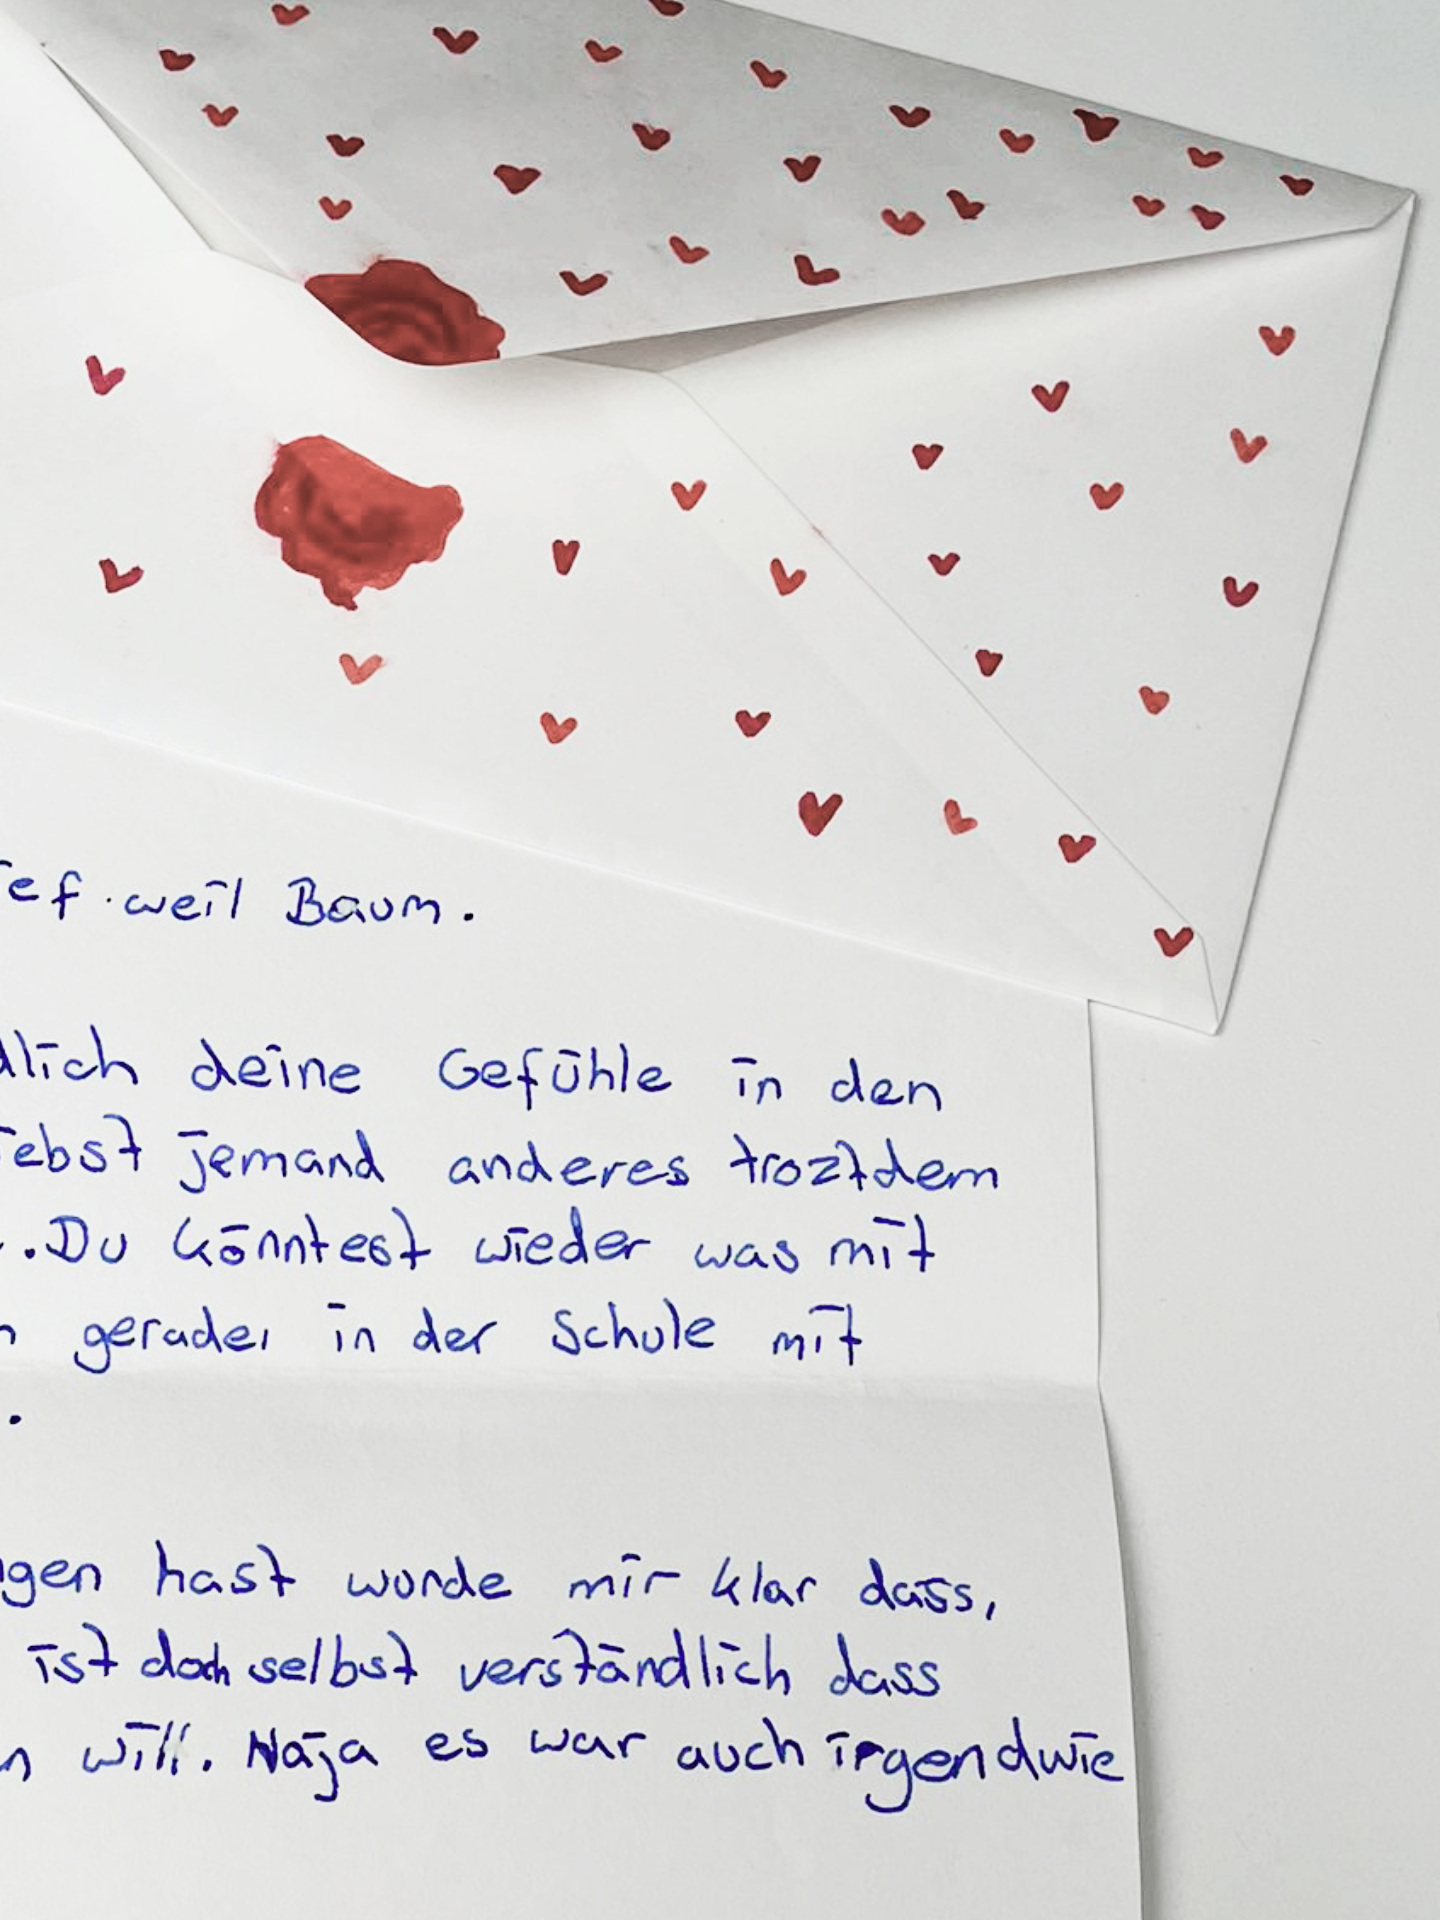 ief weil Baum.
dlich deine Gefühle in den
iebst jemand anderes troztdem
. Du könntest wieder was mit
n gerade, in der Schule mit
.
gen hast wurde mir klar dass,
ist doch selbst verständlich dass
n will. Naja es war auch irgendwie